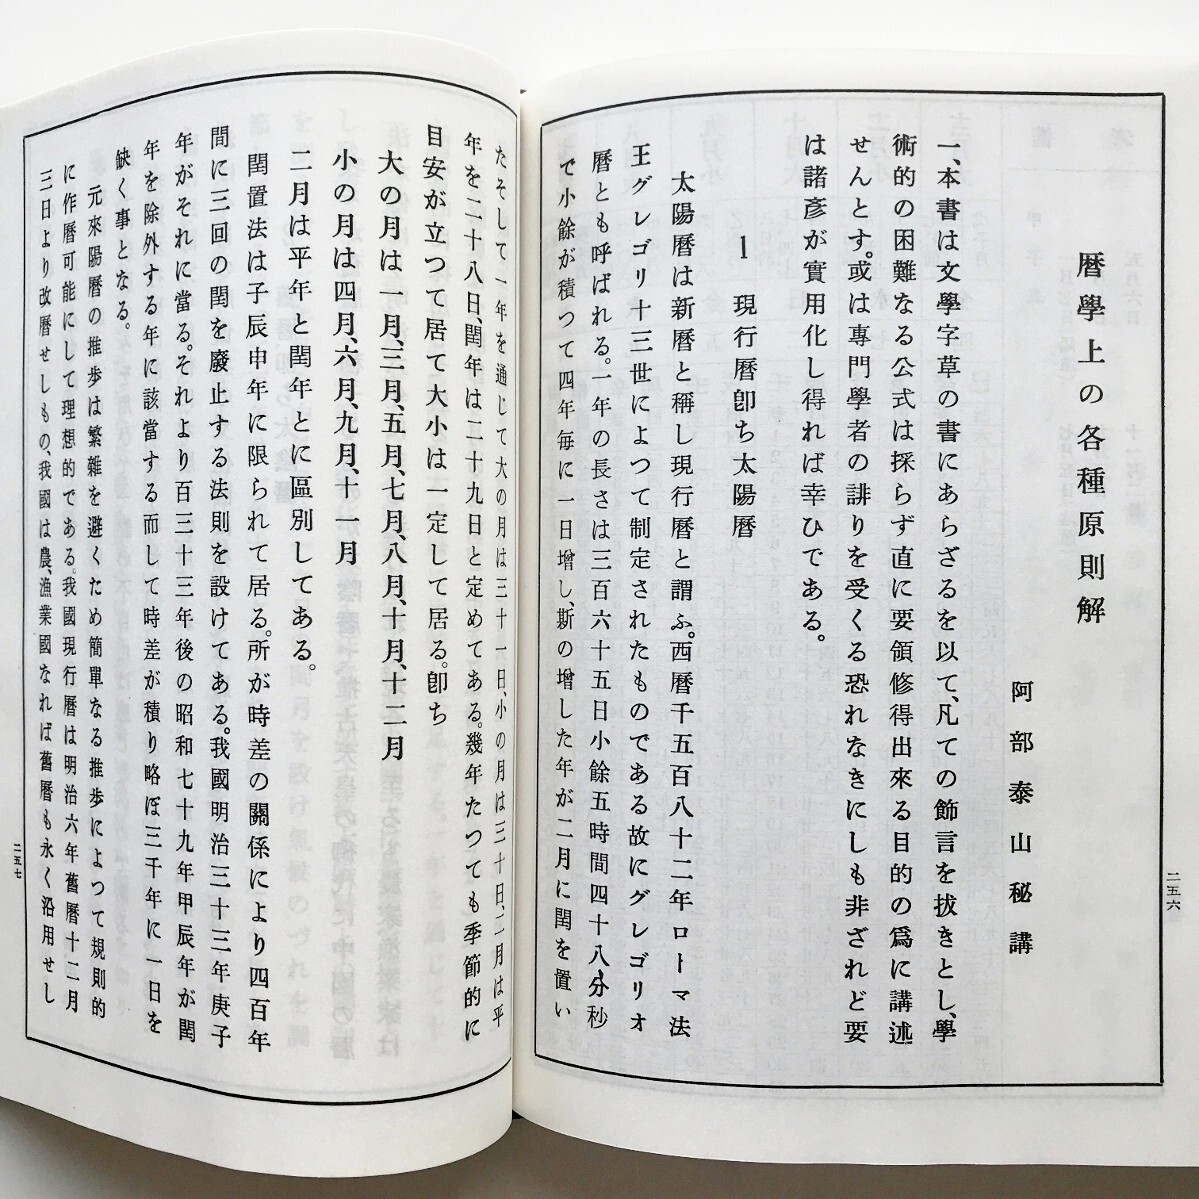 暦學上の各種原則解
阿部泰山秘講
一、本書は文學字草の書にあらざるを以て、凡ての飾言を抜きとし、學
術的の困難なる公式は採らず直に要領修得出來る目的の爲に講述
せんとす。或は專門學者の誹りを受くる恐れなきにしも非ざれど要
は諸彦が實用化し得れば幸ひである。
1 現行暦卽ち太陽暦
太陽暦は新暦と稱し現行暦と謂ふ。西暦千五百八十二年ローマ法
王グレゴリ十三世によつて制定されたものである故にグレゴリオ
暦とも呼ばれる。一年の長さは三百六十五日小餘五時間四十八分秒
で小餘が積つて四年毎に一日增し、斯の增した年が二月に閏を置い
二五六
たそして一年を通じて大の月は三十一日、小の月は三十日、二月は平
年を二十八日、閏年は二十九日と定めてある。幾年たつても季節的に
目安が立つて居て大小は一定して居る。卽ち
大の月は一月、三月、五月、七月、八月、十月、十二月
小の月は四月、六月、九月、十一月
二月は平年と閏年とに區別してある。
閏置法は子辰申年に限られて居る。所が時差の關係により四百年
間に三回の閏を廢止する法則を設けてある。我國明治三十三年庚子
年がそれに當る。それより百三十三年後の昭和七十九年甲辰年が閏
年を除外する年に該當する而して時差が積り略ぼ三千年に一日を
缺く事となる。
元來陽暦の推步は繁雜を避くため簡單なる推步によつて規則的
に作暦可能にして理想的である。我國現行暦は明治六年舊暦十二月
三日より改暦せしもの、我國は農、漁業國なれば舊暦も永く沿用せし
二五七